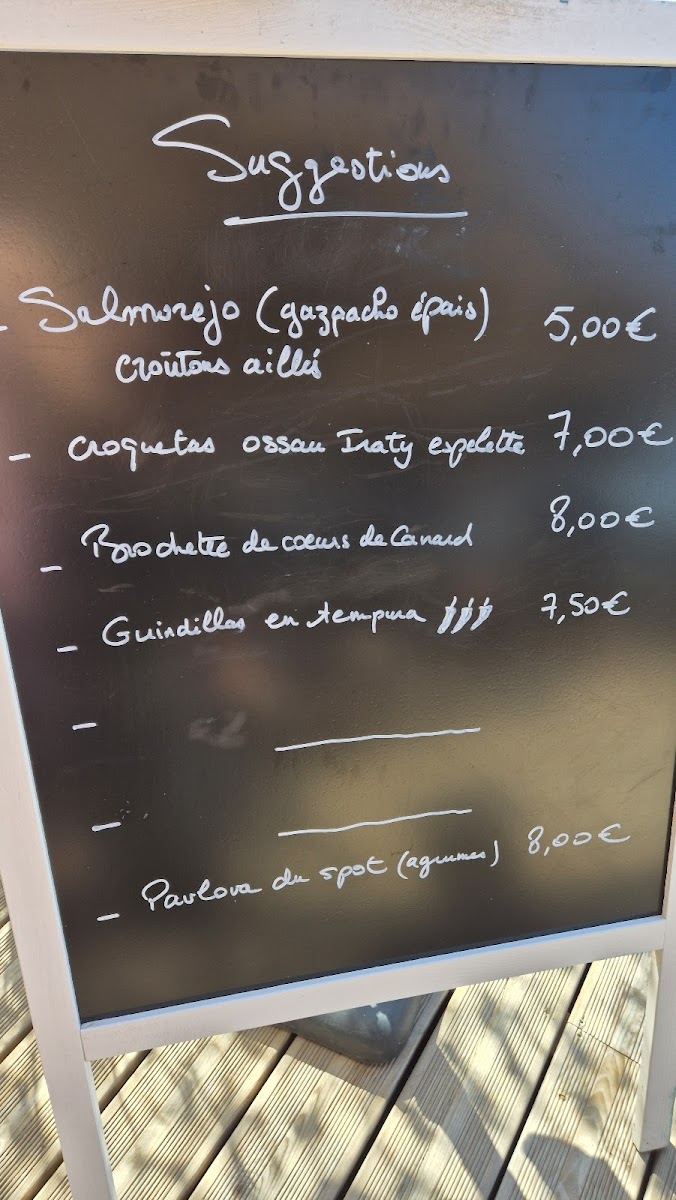 Suggestions
- Salmorejo (gazpacho épais) 5,00€
croûtons aillés
- Croquetas ossau Iraty espelette 7,00€
- Brochette de coeurs de Canard 8,00€
- Guindillas en tempura 7,50€
-
-
- Pavlova du spot (agrumes) 8,00€